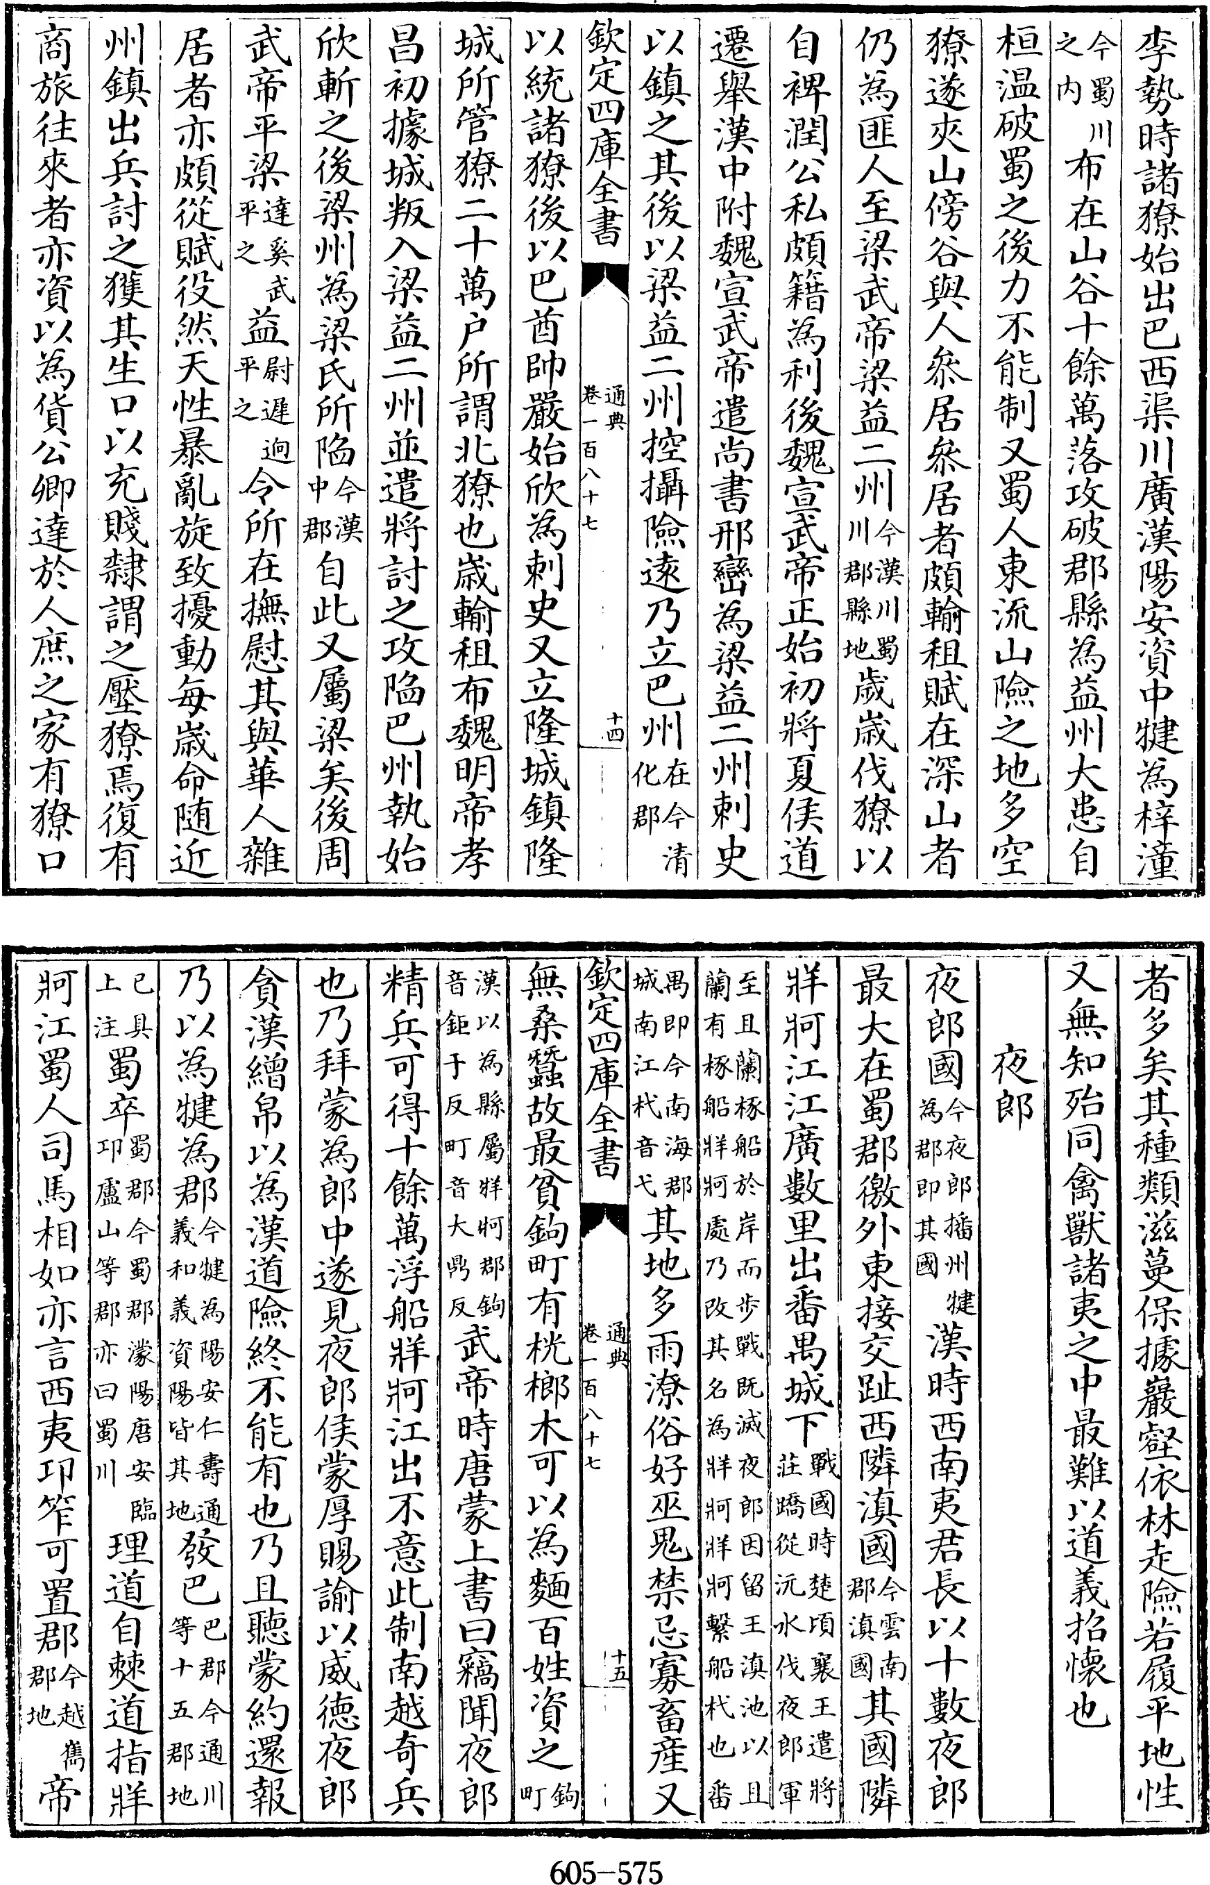 李勢時諸獠始出巴西渠川廣漢陽安資中犍為梓潼
今蜀川之内布在山谷十餘萬落攻破郡縣為益州大患自
桓温破蜀之後力不能制又蜀人東流山險之地多空
獠遂夾山傍谷與人叅居叅居者頗輸租賦在深山者
仍為匪人至梁武帝梁益二州今漢川蜀川郡縣地歲歲伐獠以
自裨潤公私頗籍為利後魏宣武帝正始初將夏侯道
遷舉漢中附魏宣武帝遣尚書邢巒為梁益二州刺史
以鎮之其後以梁益二州控攝險遠乃立巴州在今清化郡
欽定四庫全書
通典
卷一百八十七
十四
以統諸獠後以巴酋帥嚴始欣為刺史又立隆城鎮隆
城所管獠二十萬户所謂北獠也歲輸租布魏明帝孝
昌初據城叛入梁益二州並遣將討之攻陷巴州執始
欣斬之後梁州為梁氏所陷今漢中郡自此又屬梁矣後周
武帝平梁達奚武平之益尉遲迥平之令所在撫慰其與華人雜
居者亦頗從賦役然天性暴亂旋致擾動每歲命随近
州鎮出兵討之獲其生口以充賤隸謂之壓獠焉復有
商旅往來者亦資以為貨公卿達於人庶之家有獠口
者多矣其種類滋蔓保據巖壑依林走險若履平地性
又無知殆同禽獸諸夷之中最難以道義招懷也
夜郎
夜郎國今夜郎播州犍為郡即其國漢時西南夷君長以十數夜郎
最大在蜀郡徼外東接交趾西隣滇國今雲南郡滇國其國隣
牂牁江江廣數里出番禺城下戰國時楚頃襄王遣將莊蹻從沅水伐夜郎軍
至且蘭椓船於岸而步戰既滅夜郎因留王滇池以且蘭有椓船牂牁處乃改其名為牂牁牂牁繫船杙也番
禺即今南海郡城南江杙音弋其地多雨潦俗好巫鬼禁忌寡畜産又
欽定四庫全書
通典
卷一百八十七
十五
無桑蠶故最貧鉤町有桄榔木可以為麵百姓資之鉤町
漢以為縣屬牂牁郡鉤音鉅于反町音大鼎反武帝時唐蒙上書曰竊聞夜郎
精兵可得十餘萬浮船牂牁江出不意此制南越奇兵
也乃拜蒙為郎中遂見夜郎侯蒙厚賜諭以威德夜郎
貪漢繒帛以為漢道險終不能有也乃且聽蒙約還報
乃以為犍為郡今犍為陽安仁壽通義和義資陽皆其地發巴巴郡今通川等十五郡地
已具上注蜀卒蜀郡今蜀郡濛陽唐安臨邛盧山等郡亦曰蜀川理道自僰道指牂
牁江蜀人司馬相如亦言西夷邛笮可置郡今越嶲郡地帝
605-575